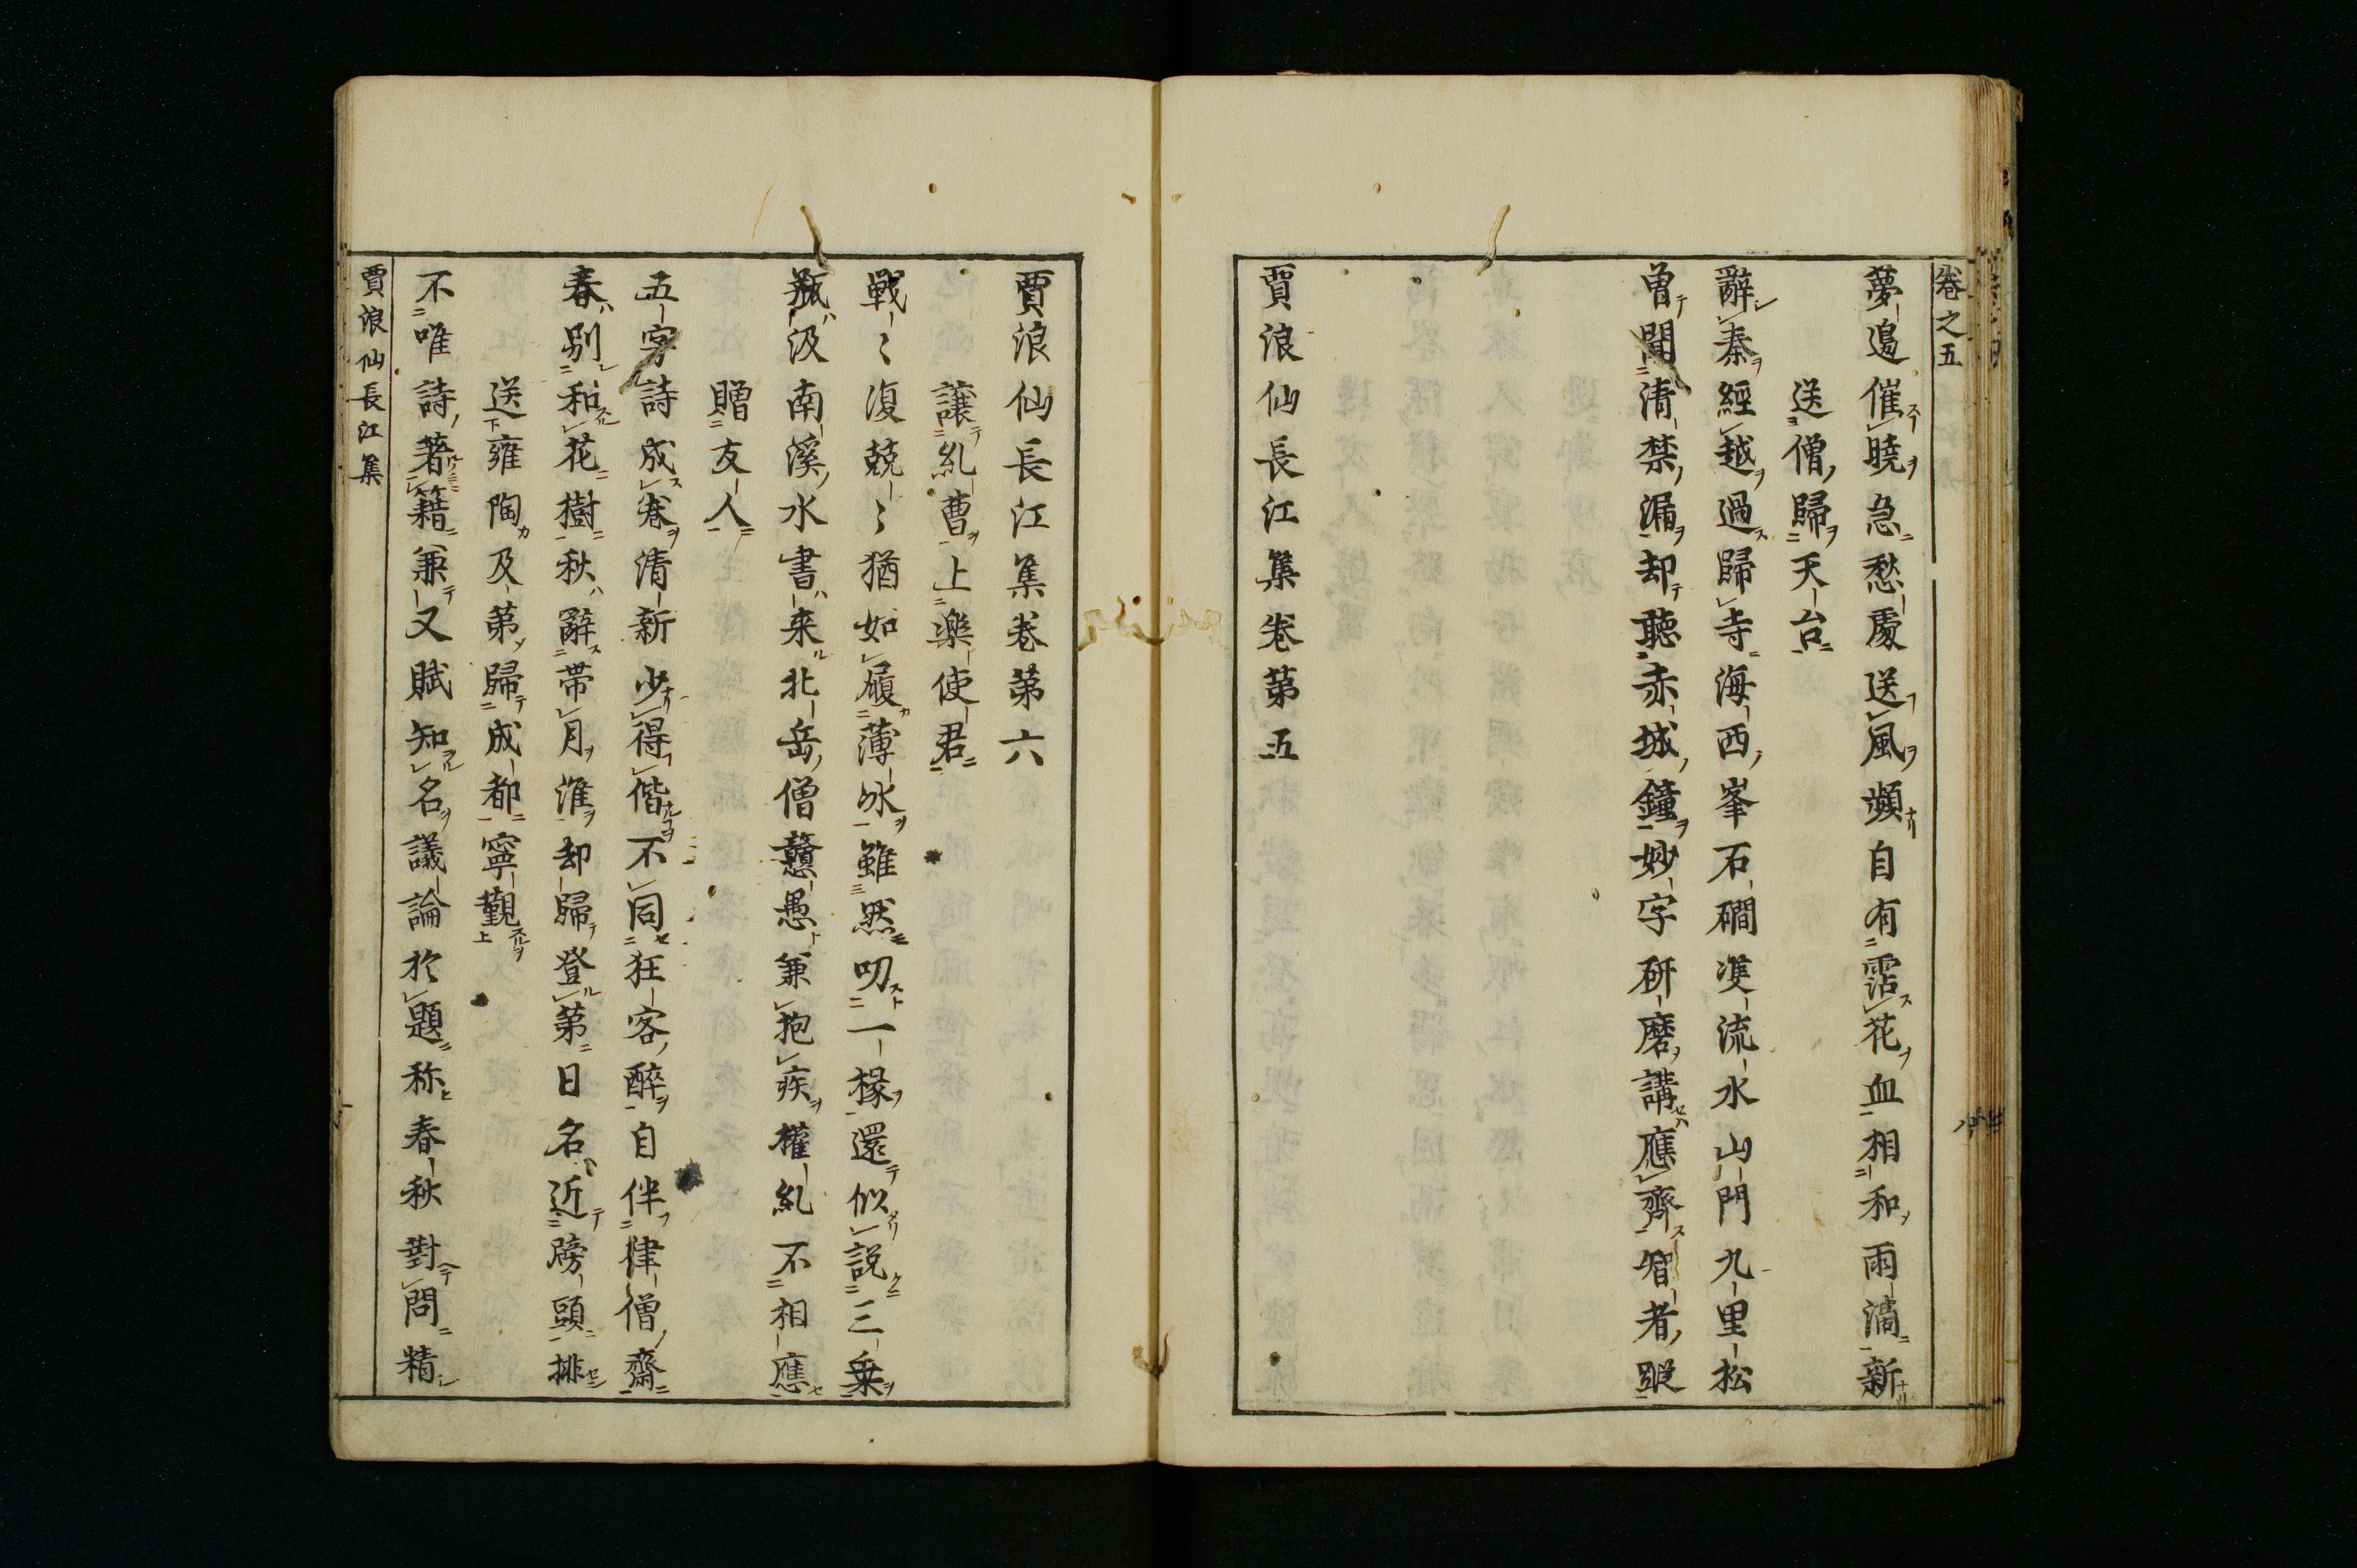 卷之五
夢邉催曉急愁處送風頻自有霑花血相和雨滴新
送僧歸天台
辭秦經越過歸寺海西峯石磵㕠流水山門九里松
曽聞清禁漏却聽赤城鐘妙字研磨講應齊智者蹤
賈浪仙長江集卷第五
賈浪仙長江集卷第六
讓糺曹上樂使君
戰〻復兢〻猶如履薄氷雖然叨一椽還似説三乗
瓶汲南溪水書来北岳僧戇愚兼抱疾權糺不相應
贈友人
五字詩成卷清新少得偕不同狂客醉自伴律僧齋
春別和花樹秋辭帯月淮却歸登第日名近牓頭排
送雍陶及第歸成都寧觀
不唯詩著籍兼又賦知名議論於題称春秋對問精
賈浪仙長江集